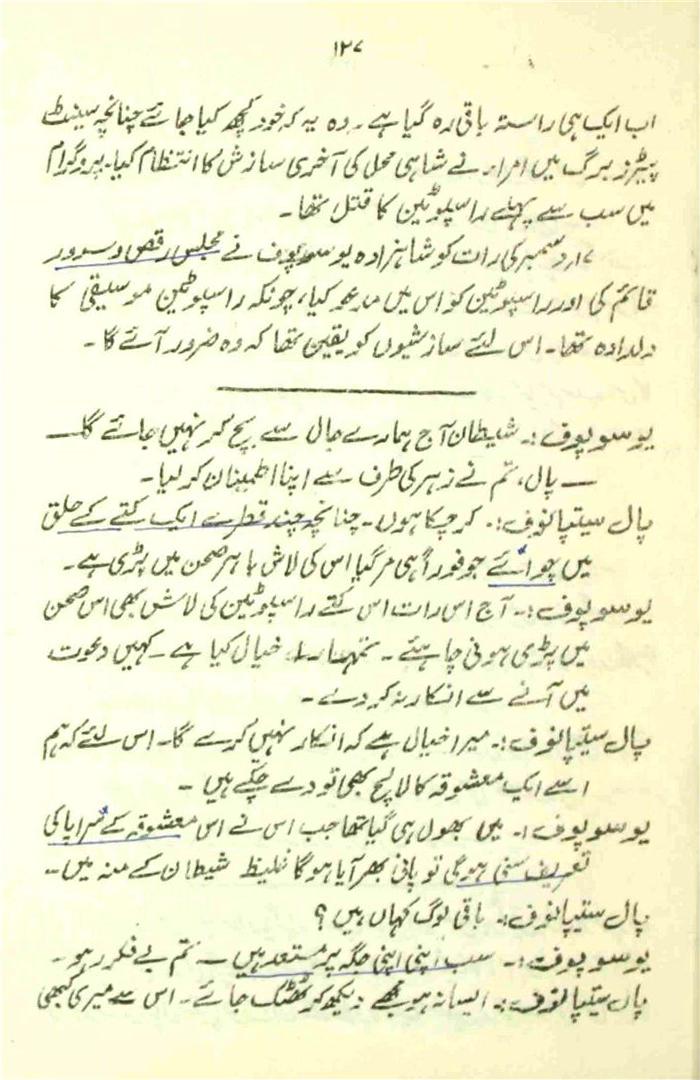 ۱۲۷
اب ایک ہی راستہ باقی رہ گیا ہے۔ وہ یہ کہ خود کچھ کیا جائے چنانچہ سینٹ
پیٹرز برگ میں امراء نے شاہی محل کی آخری سازش کا انتظام کیا۔ پروگرام
میں سب سے پہلے راسپوٹین کا قتل تھا۔
۱۷ دسمبر کی رات کو شاہزادہ یوسوپوف نے مجلس رقص و سرور
قائم کی اور راسپوٹین کو اس میں مدعو کیا، چونکہ راسپوٹین موسیقی کا
دلدادہ تھا۔ اس لئے سازشیوں کو یقین تھا کہ وہ ضرور آئے گا۔
یوسوپوف:۔ شیطان آج ہمارے جال سے بچ کر نہیں جائے گا—
— پال، تم نے زہر کی طرف سے اپنا اطمینان کر لیا۔
پال سیتپانوف:۔ کر چکا ہوں۔ چنانچہ چند قطرے ایک کتے کے حلق
میں چوائے جو فوراً ہی مر گیا اس کی لاش باہر صحن میں پڑی ہے۔
یوسوپوف:۔ آج اس رات اس کتے راسپوٹین کی لاش بھی اس صحن
میں پڑی ہونی چاہئے۔ تمہارا خیال کیا ہے۔ کہیں دعوت
میں آنے سے انکار نہ کر دے۔
پال سیتپانوف:۔ میرا خیال ہے کہ انکار نہیں کرے گا۔ اس لئے کہ ہم
اسے ایک معشوقہ کا لالچ بھی تو دے چکے ہیں۔
یوسوپوف:۔ میں بھول ہی گیا تھا جب اس نے اس معشوقہ کے سراپا کی
تعریف سنی ہوگی تو پانی بھر آیا ہوگا غلیظ شیطان کے منہ میں۔
پال ستیپانوف:۔ باقی لوگ کہاں ہیں؟
یوسوپوف:۔ سب اپنی اپنی جگہ پر مستعد ہیں — تم بے فکر رہو۔
پال ستیپانوف:۔ ایسا نہ ہو مجھے دیکھ کر ٹھٹک جائے۔ اس سے میری کبھی